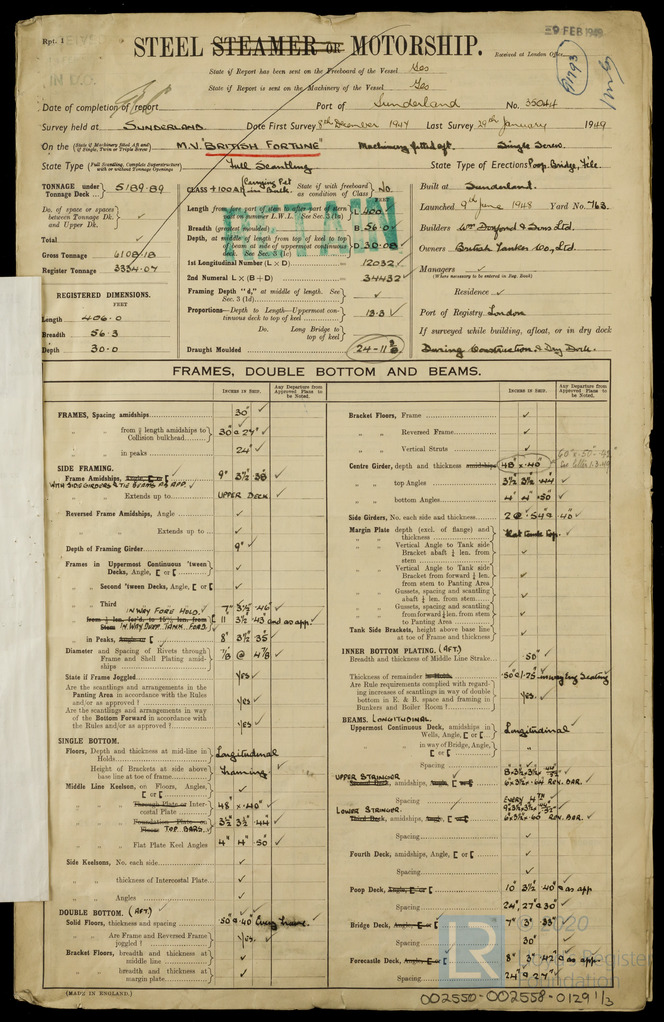 Rpt. 1
STEEL STEAMER OR MOTORSHIP.
9 FEB 1949
Received at London Office
State if Report has been sent on the Freeboard of the Vessel Yes
State if Report is sent on the Machinery of the Vessel Yes
Date of completion of report Port of Sunderland No. 35044
Survey held at SUNDERLAND. Date First Survey 8th December 1947 Last Survey 29th January 1949
On the (State if Machinery fitted Aft and if Single, Twin or Triple Screw) M.V. "BRITISH FORTUNE" Machinery fitted aft. Single Screw.
State Type (Full Scantling, Complete Superstructure with or without Tonnage Openings) Full Scantling State Type of Erections Poop, Bridge, F'cle.
TONNAGE under Tonnage Deck 5189.89
Do. of space or spaces between Tonnage Dk. and Upper Dk.
Total
Gross Tonnage 6108.18
Register Tonnage 3334.07
REGISTERED DIMENSIONS.
FEET
Length 406.0
Breadth 56.3
Depth 30.0
CLASS +100A1 Carrying Pet. in Bulk. State if with freeboard as condition of Class NO
RETAIN
L 400.
Breadth (greatest moulded) B 56.0
Depth, at middle of length from top of keel to top of beam at side of uppermost continuous D 30.08
1st Longitudinal Number (L × D) 12032
2nd Numeral L × (B + D) 34432
Framing Depth "d," at middle of length. See Sec. 3 (1d)
Proportions—Depth to Length—Uppermost continuous deck to top of keel 13.3
Do. Long Bridge to top of keel
Draught Moulded 24-11
Built at Sunderland.
Launched 9th June 1948 Yard No. 763.
Builders Wm Doxford & Sons Ltd.
Owners British Tanker Co., Ltd.
Managers
(Where necessary to be entered in Reg. Book)
Residence
Port of Registry London
If surveyed while building, afloat, or in dry dock
During Construction & Dry Dock.
FRAMES, DOUBLE BOTTOM AND BEAMS.
INCHES IN SHIP. Any Departure from Approved Plans to be Noted.
FRAMES, Spacing amidships 30"
" " from 3/5 length amidships to Collision bulkhead 30" & 27"
" " in peaks 24"
SIDE FRAMING.
Frame Amidships, Angle, [ or [ 9" 3½ .38
WITH SIDE GIRDERS & TIE BEAMS AS APP.
" " Extends up to UPPER DECK
Reversed Frame Amidships, Angle
" " Extends up to
Depth of Framing Girder 9"
Frames in Uppermost Continuous 'tween Decks, Angle, [ or [
" Second 'tween Decks, Angle, [ or [
" Third " " "
IN WAY FORE HOLD. 7" 3½ .46
IN WAY DEEP TANK FORD. 11 3½ .43 and as app.
" in Peaks, Angle or [ 8" 3½ .35
Diameter and Spacing of Rivets through Frame and Shell Plating amidships 7/8 @ 4 7/8
State if Frame Joggled Yes
Are the scantlings and arrangements in the Panting Area in accordance with the Rules and/or as approved? Yes
Are the scantlings and arrangements in way of the Bottom Forward in accordance with the Rules and/or as approved? Yes
SINGLE BOTTOM.
Floors, Depth and thickness at mid-line in Holds Longitudinal
" Height of Brackets at side above base line at toe of frame Framing
Middle Line Keelson, on Floors, Angles, [ or [
" " Through Plate or Intercostal Plate 48" x .40"
" " Foundation Plate on Floors TOP BARS. 3½ 3½ .44
" " Flat Plate Keel Angles 4" 4" .50
Side Keelsons, No. each side
" " thickness of Intercostal Plate
" " Angles
DOUBLE BOTTOM. (AFT)
Solid Floors, thickness and spacing .50 & .40 Every Frame
" " Are Frame and Reversed Frame joggled? Yes.
Bracket Floors, breadth and thickness at middle line
" " breadth and thickness at margin plate
Bracket Floors, Frame
" " Reversed Frame
" " Vertical Struts
Centre Girder, depth and thickness amidships 48" x .40"
" " top Angles 3½ 3½ .44
" " bottom Angles 4" 4" .50
Side Girders, No. each side and thickness 2 @ .54 & .40
Margin Plate depth (excl. of flange) and thickness Flat tank top.
" " Vertical Angle to Tank side Bracket abaft ¼ len. from stem
" " Vertical Angle to Tank side Bracket from forward ¼ len. from stem to Panting Area
" " Gussets, spacing and scantling abaft ¼ len. from stem
" " Gussets, spacing and scantling from forward ¼ len. from stem to Panting Area
Tank Side Brackets, height above base line at toe of Frame and thickness
INNER BOTTOM PLATING. (AFT.)
Breadth and thickness of Middle Line Strake .50"
Thickness of remainder in Holds .50 & 1.75 in way eng. Seating
Are Rule requirements complied with regarding increases of scantlings in way of double bottom in E. & B. space and framing in Bunkers and Boiler Room? Yes.
BEAMS. LONGITUDINAL.
Uppermost Continuous Deck, amidships in Wells, Angle, [ or [ Longitudinal
" " in way of Bridge, Angle, [ or [ "
" " Spacing
UPPER STRINGER amidships, Angle, [ or [ 6 x 3½ x .64 REV. BAR.
" " Spacing EVERY 4TH
LOWER STRINGER.
Third Deck, amidships, Angle, [ or [ 6 x 3½ x .60 REV. BAR.
" " Spacing
Fourth Deck, amidships, Angle, [ or [
" " Spacing
Poop Deck, Angle, [ or [ 10" 3½ .40 & as app
" " Spacing 24", 27" & 30"
Bridge Deck, Angle, [ or [ 7" 3" .33"
" " Spacing 30"
Forecastle Deck, Angle, [ or [ 8" 3" .42 & as app.
" " Spacing 24" & 27"
(MADE IN ENGLAND.)
002550-002558-0129 1/3
LR
© 2020
Lloyd's Register
Foundation